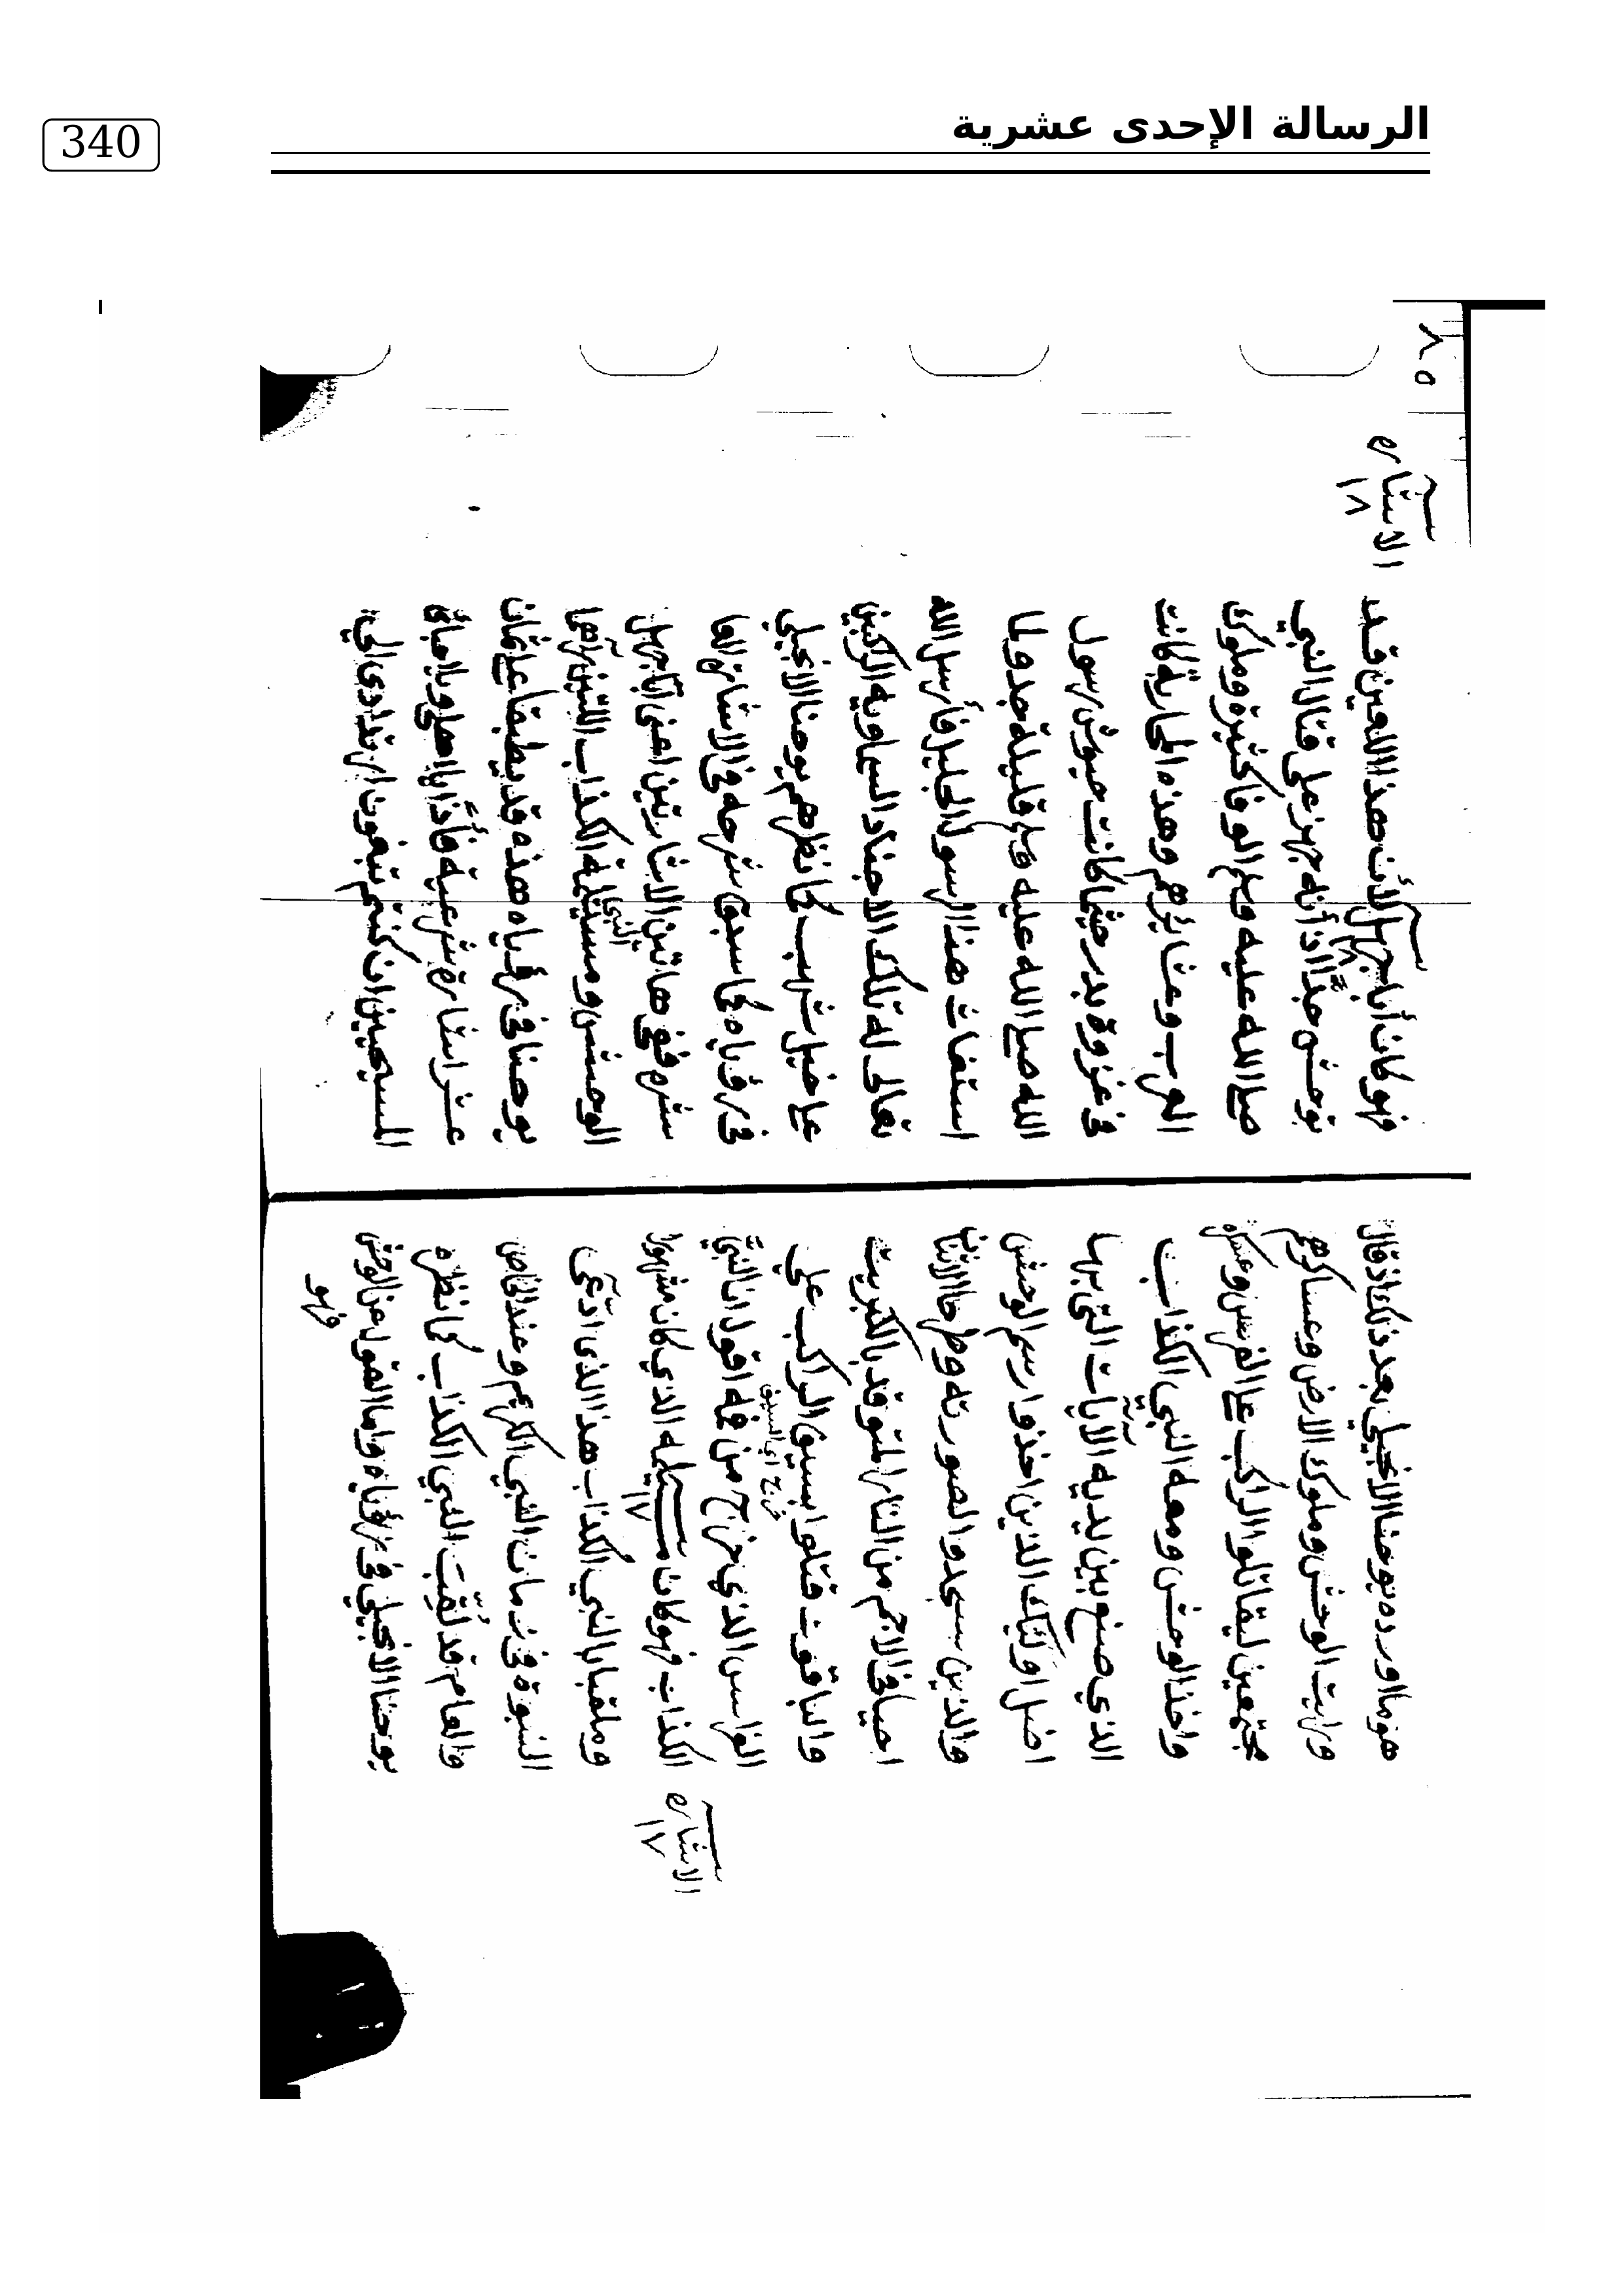 الرسالة الإحدى عشرية
340
هو ما اورده يوحنا الانجيلي بعد ذلك اذ قال
ورايت الوحش وملوك الارض وعساكرهم
مجتمعين ليقاتلوا الراكب على الفرس وعسكره
واخذ الوحش ومعه النبي الكذاب
الذي صنع بين يديه الآيات التي بها
اضل اوليك الذين اخذوا رسم الوحش
والذين سجدوا لصورته وطرحا الاثنان
احيا في الاجم من النار المتوقد بالكبريت
والباقوت قتلوا بسيف الراكب علي
خرج اي السيف
الفرس الذي خرج من فمه اقول ان النبي
الاشاره ١٧
الكذاب فهو كان مسيلمه الذي كان مشهورا
١٧
وملقبا بالنبي الكذاب هذا الذي ادّعى
النبوة في زمان النبي الكريم وعند الخاص
والعام قد لُقِّبَ النبي الكذاب كما نظره
يوحنا الانجيلي في رؤياه واما القول عن الوحش
فهو
٨٥
الاشاره ١٨
فهو كان أبا جهل لأن هذا اللعين قد
١٨
توحش جدًّا اذ أنه جهز على قتال النبي
صلى الله عليه وسلم الوفا كثيرة وملوك
العرب وعشايرهم وهذه المحاربة كانت
في غزوة بدر حيثما كانت جيوش رسول
الله صلى الله عليه وسلم قليلة جدا ولما
استغاث هذا الرسول الجليل فأرسل الله
تعالى له تلك الاجناد السماويه الراكبين
على خيل شهب كما نظرهم يوحنا الانجيلي
في رؤياه كما سبق شرحه في الاشارة العا
شره ففي هاتين الاشارتين اعني أبا جهل
الوحش ومسيلمة النبي الكذاب اللتين رآهما
يوحنا في رؤياه هذه قد يطبقا على ثمان
عشر اشارة شرعية فأذًا يا اهلي ويا احباي
المسيحيين ان كنتم تبغون ان